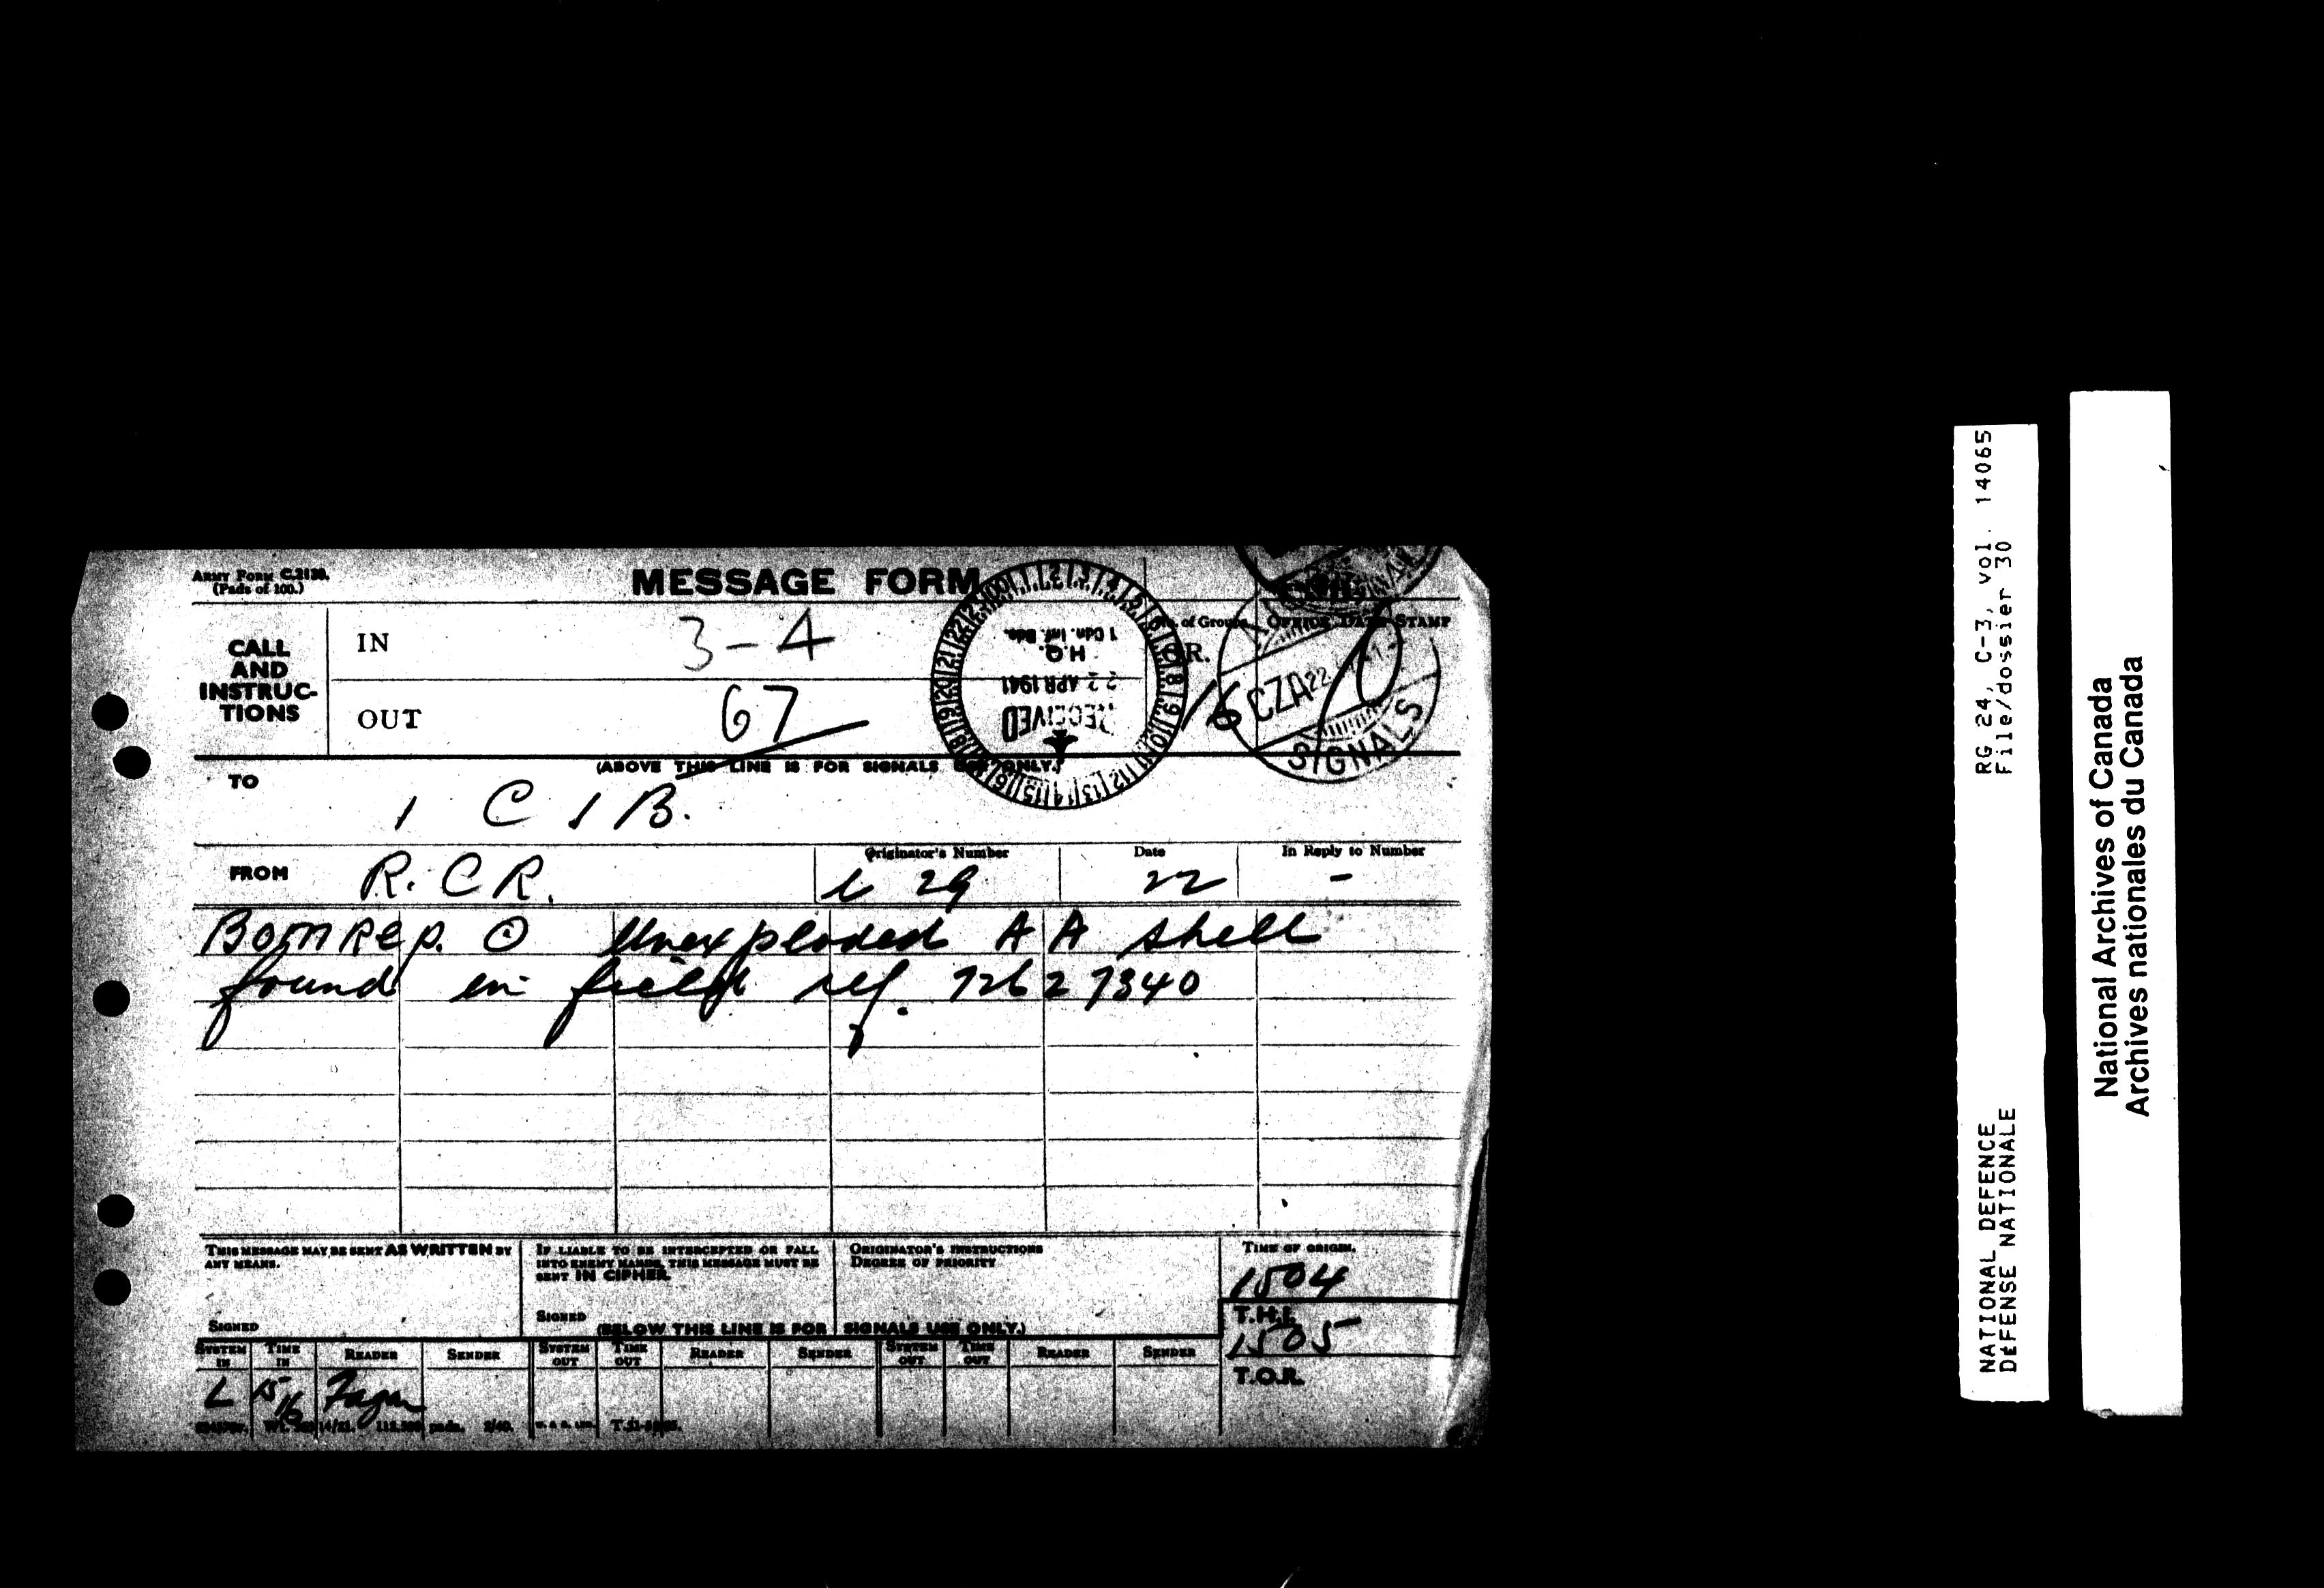 ARMY FORM C.2128.
(Pads of 100.)
MESSAGE FORM
CALL AND INSTRUC-TIONS
IN
3-4
OUT
67
No. of Groups
OFFICE DATE STAMP
GR.
16
RECEIVED
22 APR 1941
H.Q.
1 Cdn. Inf. Bde.
CZA
22
SIGNALS
(ABOVE THIS LINE IS FOR SIGNALS USE ONLY.)
TO
1 C I B.
FROM
R.C.R.
Originator's Number
29
Date
22
In Reply to Number
-
BOMREP. Unexploded A A shell
found in field ref. 72627340
THIS MESSAGE MAY BE SENT AS WRITTEN BY
ANY MEANS.
SIGNED
IF LIABLE TO BE INTERCEPTED OR FALL
INTO ENEMY HANDS, THIS MESSAGE MUST BE
SENT IN CIPHER.
SIGNED
ORIGINATOR'S INSTRUCTIONS
DEGREE OF PRIORITY
TIME OF ORIGIN.
1504
T.H.I.
1505
T.O.R.
(BELOW THIS LINE IS FOR SIGNALS USE ONLY.)
SYSTEM IN TIME IN READER SENDER SYSTEM OUT TIME OUT READER SENDER SYSTEM OUT TIME OUT READER SENDER
L 15/16
RG 24, C-3, vol. 14065
File/dossier 30
NATIONAL DEFENCE
DÉFENSE NATIONALE
National Archives of Canada
Archives nationales du Canada